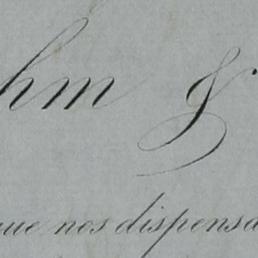 hm &
que nos dispensa